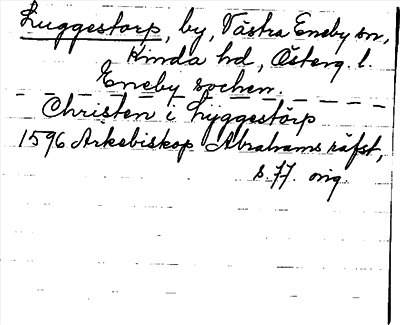 Luggestorp, by, Västra Eneby sn,
Kinda hd, Österg. l.
Eneby sochen.
Christen i Lyggestörp
1596 Arkebiskop Abrahams räfst,
s. 77. orig.